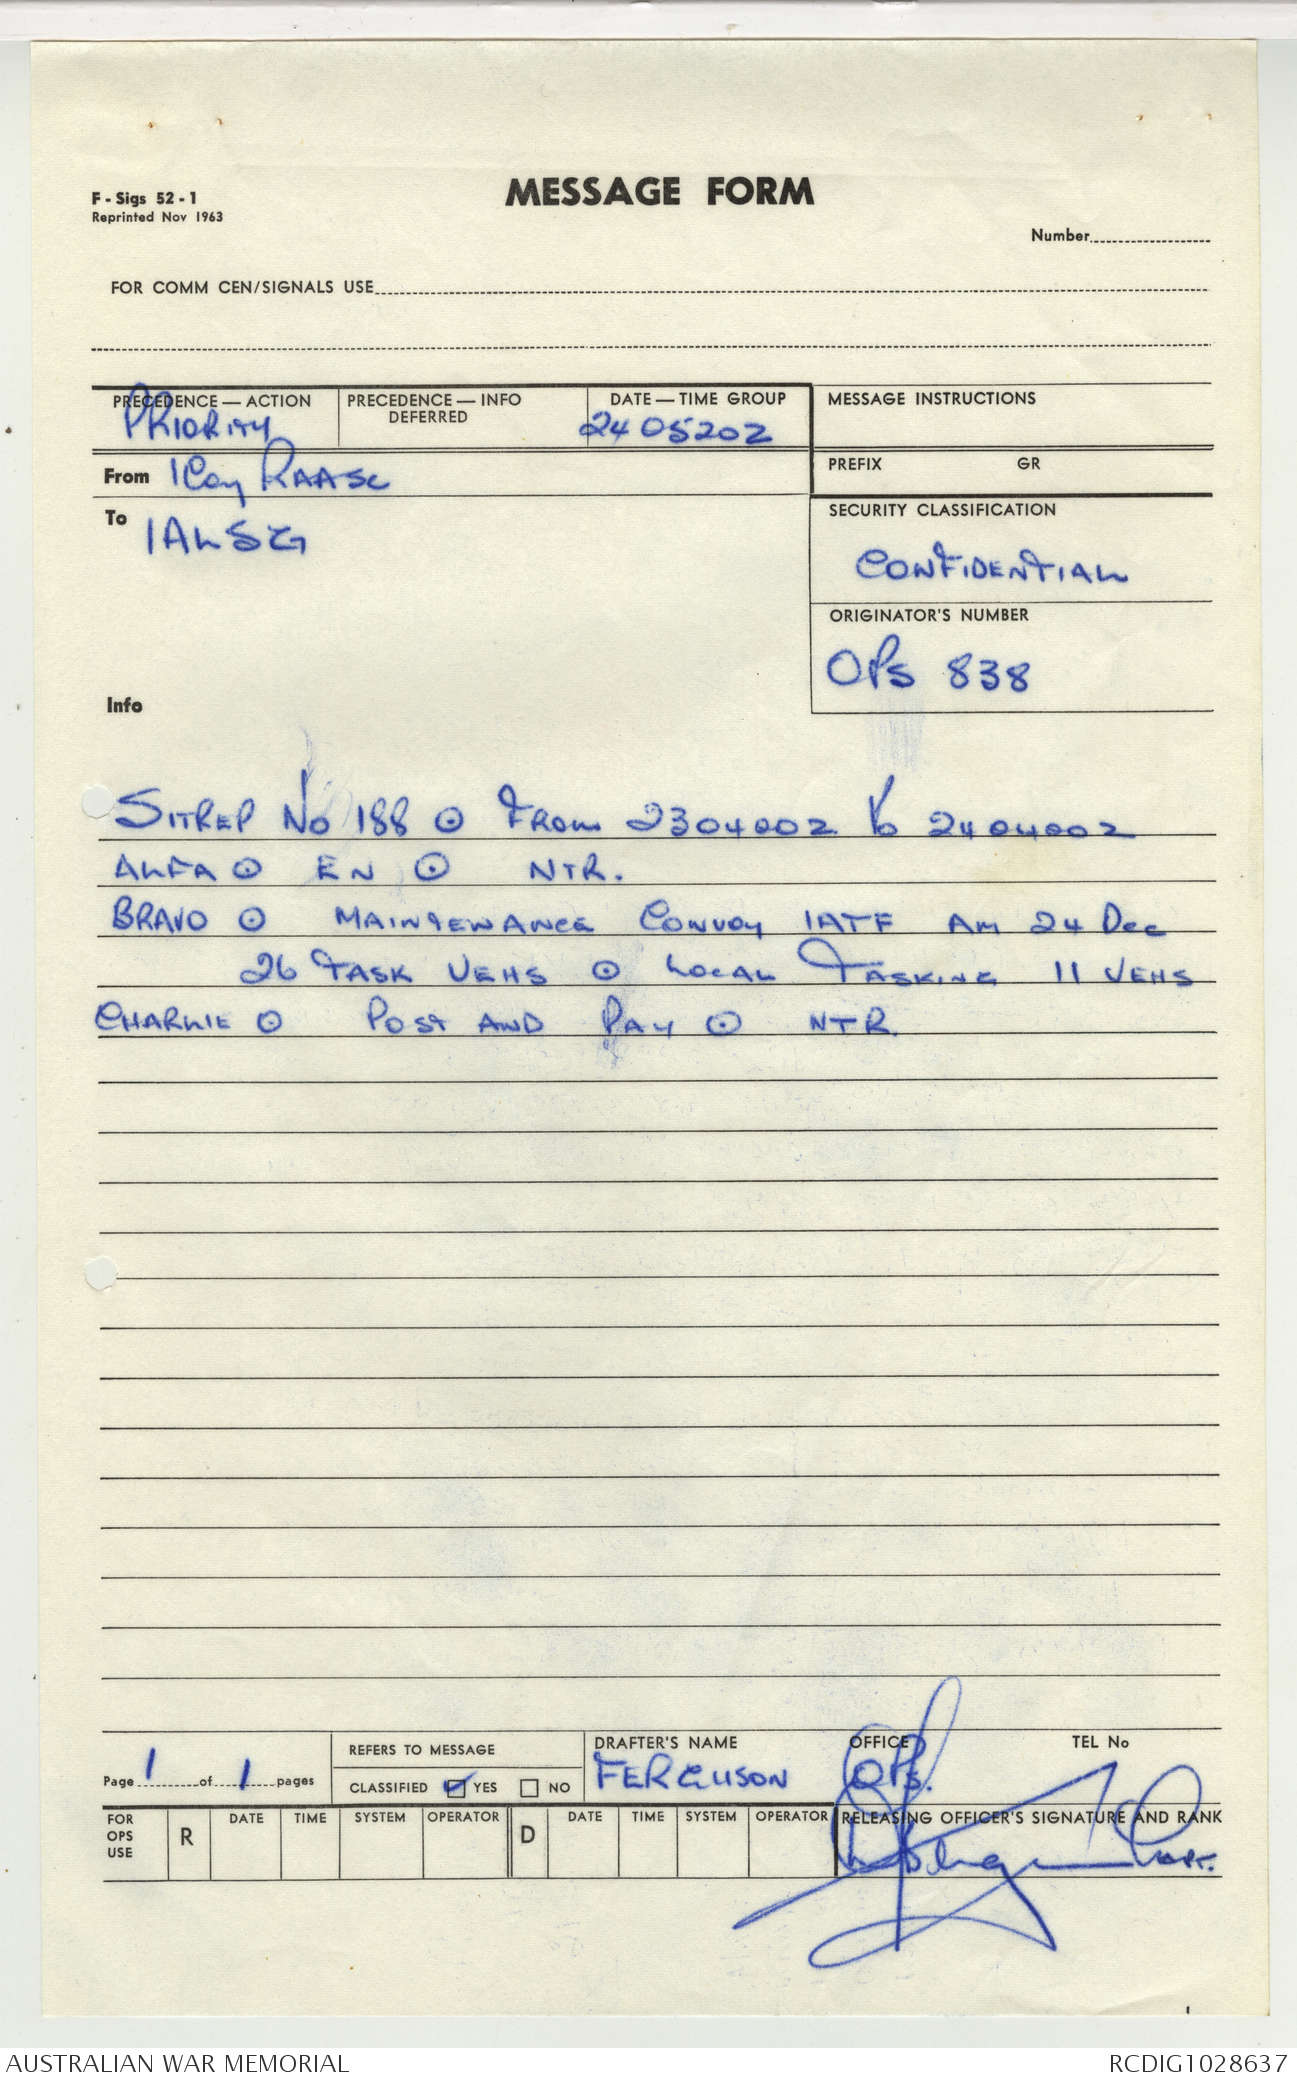 F - Sigs 52 - 1
Reprinted Nov 1963
MESSAGE FORM
Number
FOR COMM CEN/SIGNALS USE
PRECEDENCE — ACTION
PRIORITY
PRECEDENCE — INFO
DEFERRED
DATE — TIME GROUP
240520Z
MESSAGE INSTRUCTIONS
From 1 Coy RAASC
PREFIX GR
To 1ALSG
SECURITY CLASSIFICATION
CONFIDENTIAL
ORIGINATOR'S NUMBER
OPS 838
Info
SITREP No 188 ⊙ FROM 230400Z To 240400Z
ALFA ⊙ EN ⊙ NTR.
BRAVO ⊙ MAINTENANCE CONVOY 1ATF AM 24 Dec
26 TASK VEHS ⊙ LOCAL TASKING 11 VEHS
CHARLIE ⊙ POST AND PAY ⊙ NTR.
Page 1 of 1 pages
REFERS TO MESSAGE
CLASSIFIED YES NO
DRAFTER'S NAME
FERGUSON
OFFICE
OPS.
TEL No
FOR OPS USE
R DATE TIME SYSTEM OPERATOR
D DATE TIME SYSTEM OPERATOR
RELEASING OFFICER'S SIGNATURE AND RANK
Capt.
AUSTRALIAN WAR MEMORIAL
RCDIG1028637